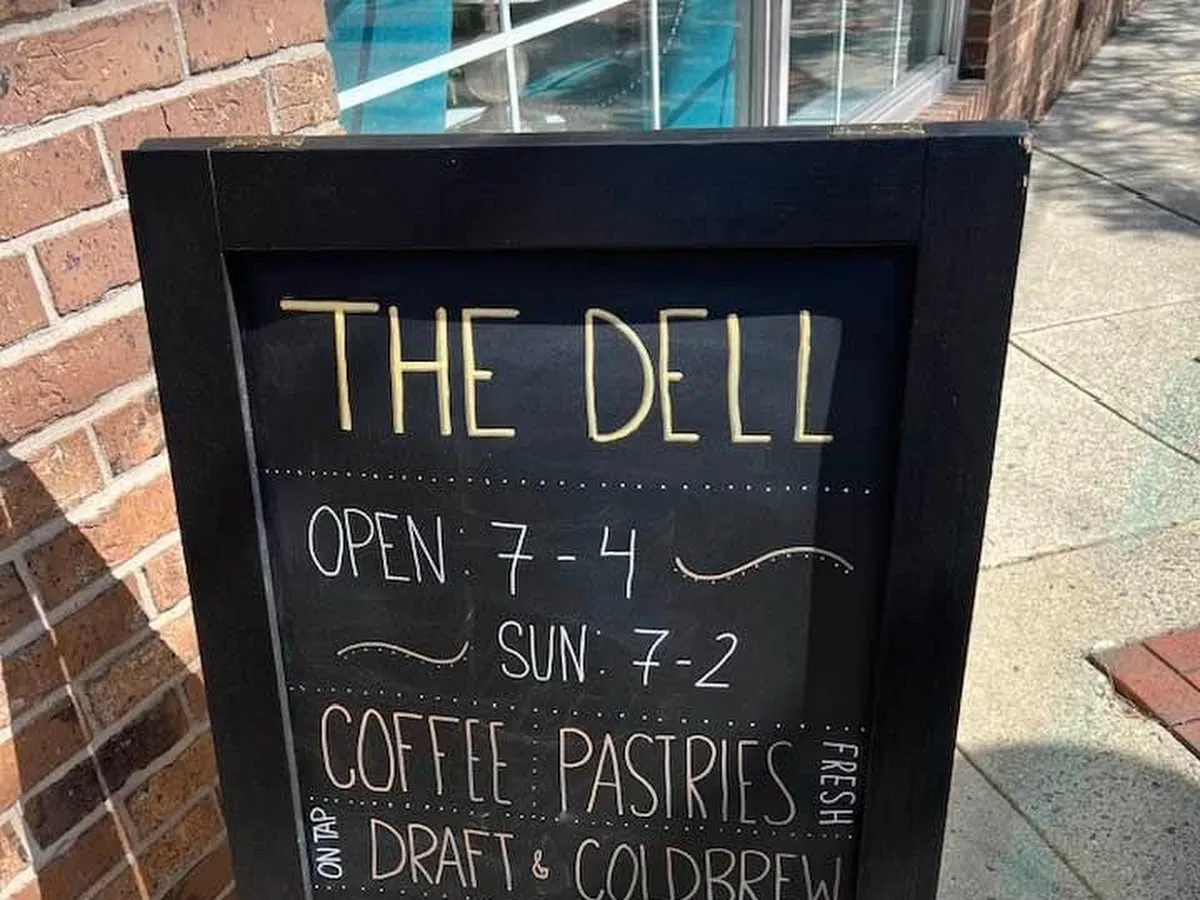 THE DELL
OPEN: 7-4
SUN: 7-2
COFFEE PASTRIES FRESH
ON TAP DRAFT & COLDBREW